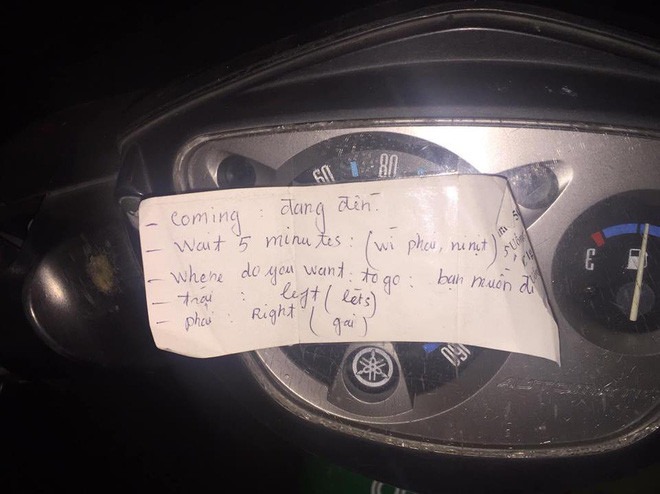 60 80
- Coming : đang đến.
- Wait 5 minutes : (wi phai, ninut)
- Where do you want to go : bạn muốn đi
- trái : left (lets)
- phải : Right (gai)
160
E